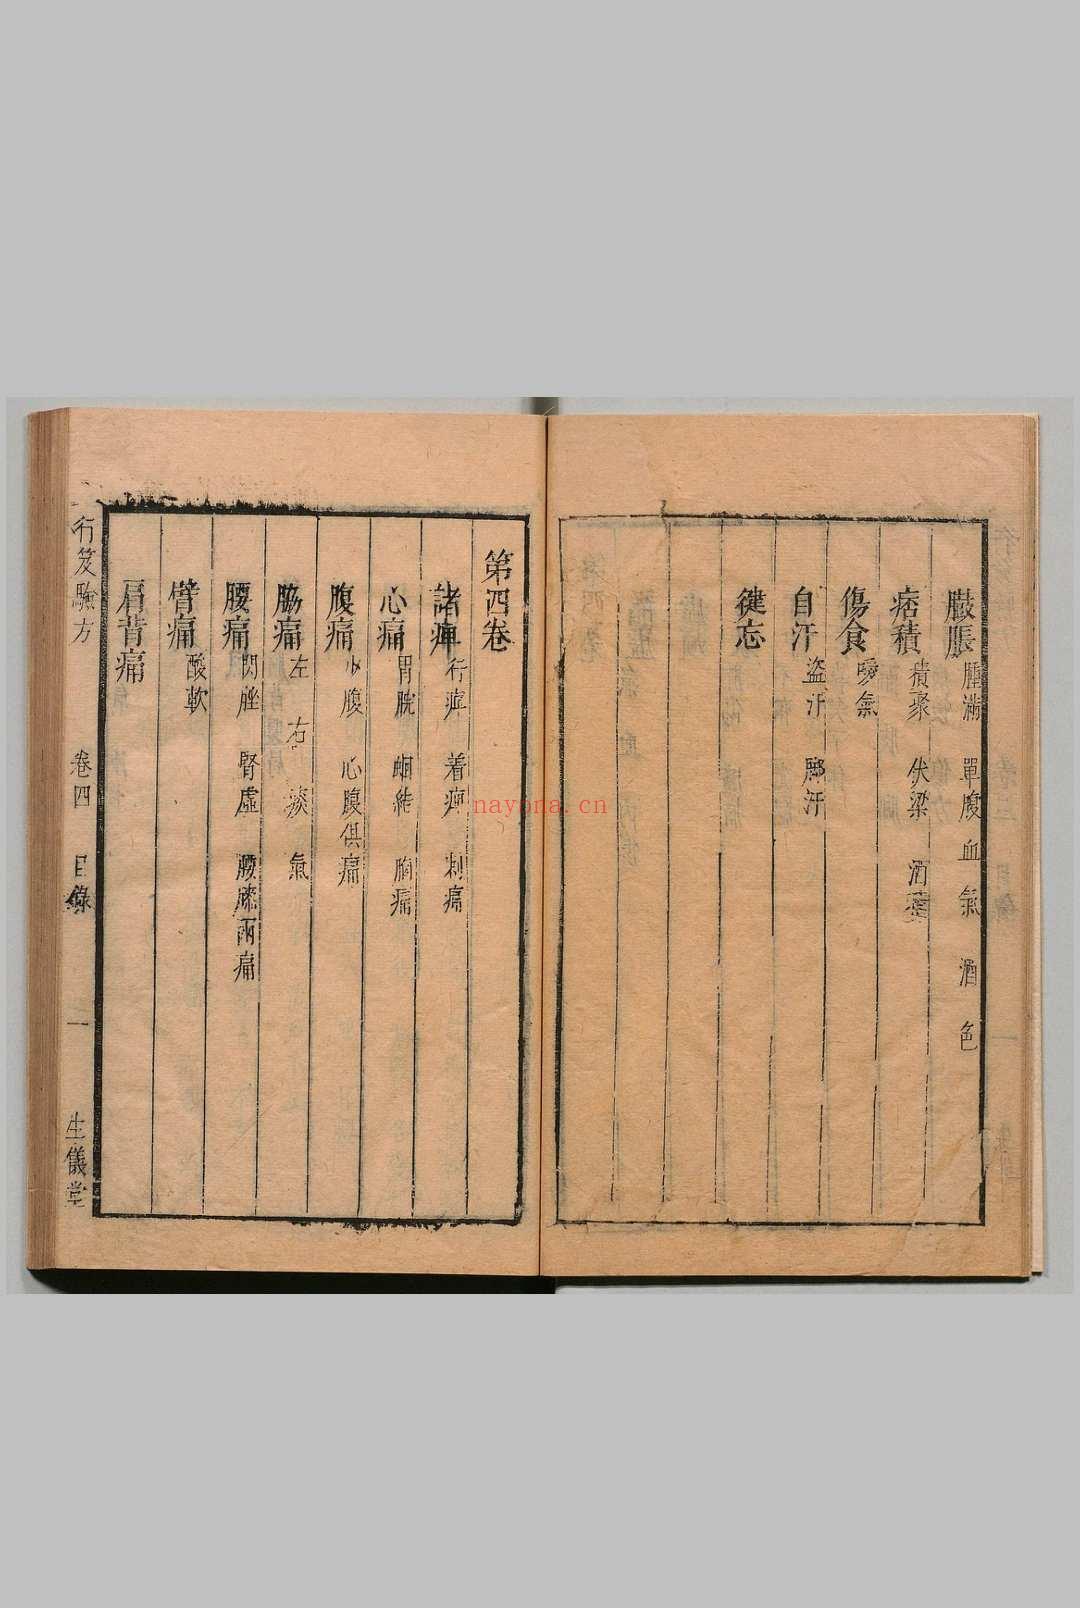 臌脹 腫滿 單腹 血 氣 酒 色
痞積 積聚 伏梁 酒
傷食 噯氣
自汗 盜汗 腳汗
健忘
第四卷
諸痺 行痺 着痺 刺痛
心痛 胃脘 蛔結 胸痛
腹痛 小腹 心腹俱痛
脇痛 左 右 痰 氣
腰痛 閃挫 腎虛 腰膝兩痛
臂痛 酸軟
肩背痛
行笈驗方 卷四 目錄 一 生儀堂
nayona.cn